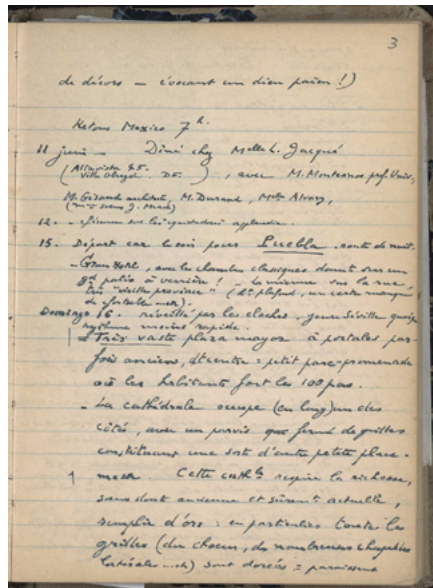 3
de décors — évoquant un dieu païen !)
Retour Mexico 7h.
11 juin — Dîné chez Melle L. Jacqué
Villa Obregon D.F. ), avec M. Monteanos prof. Univ.,
M. Girand architecte, M. Durand, Melle Alvary,
12. -
15. Départ car le soir pour Puebla. route de nuit.
- Gran Hotel, avec les chambres classiques donnant sur un
gd patio à verrière ! - La mienne sur la rue,
très "vieille province" (ht plafond, un certain manque
de confortable
Domingo 16. réveillé par les cloches, genre Séville quoique
rythme moins rapide.
- Très vaste plaza mayor à portales par-
fois anciens, et centre = petit parc-promenade
où les habitants font les 100 pas.
- La cathédrale occupe (en long) un des
côtés, avec un parvis que ferment de grilles
constituant une sorte d'autre petite place.
Cette cathle respire la richesse,
sans doute ancienne et sûremt actuelle,
remplie d'ors : en particulier toutes les
grilles (du chœur, de nombreuses chapelles
latérales ) sont dorées = paraissent